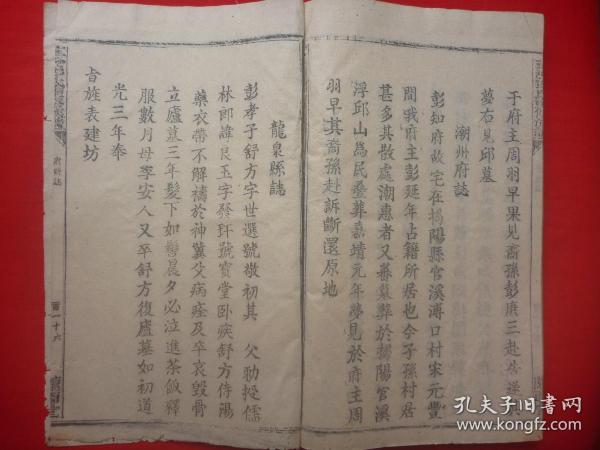 于府主周羽早果見裔孫彭賡三赴
墓右見邱墓
潮州府誌
彭知府故宅在揭陽縣官溪溥口村宋元豐
間我府主彭延年占籍所居也今子孫村居
甚多其散處潮惠者又蕃墓葬於揭陽官溪
浮邱山為民疊葬嘉靖元年夢見於府主周
羽早其裔孫赴訴斷還原地
龍泉縣誌
彭孝子舒方字世選號敬初其 父勅授儒
林郎諱良玉字發環號寶堂卧疾舒方侍湯
藥衣帶不解禱於神冀父病痊及卒哀毀骨
立廬墓三年髮下如鬈晨夕必泣進茶飯釋
服數月母李安人又卒舒方復廬墓如初道
光三年奉
旨旌表建坊
府縣誌
百一十六
孔夫子旧书网
www.kongfz.com